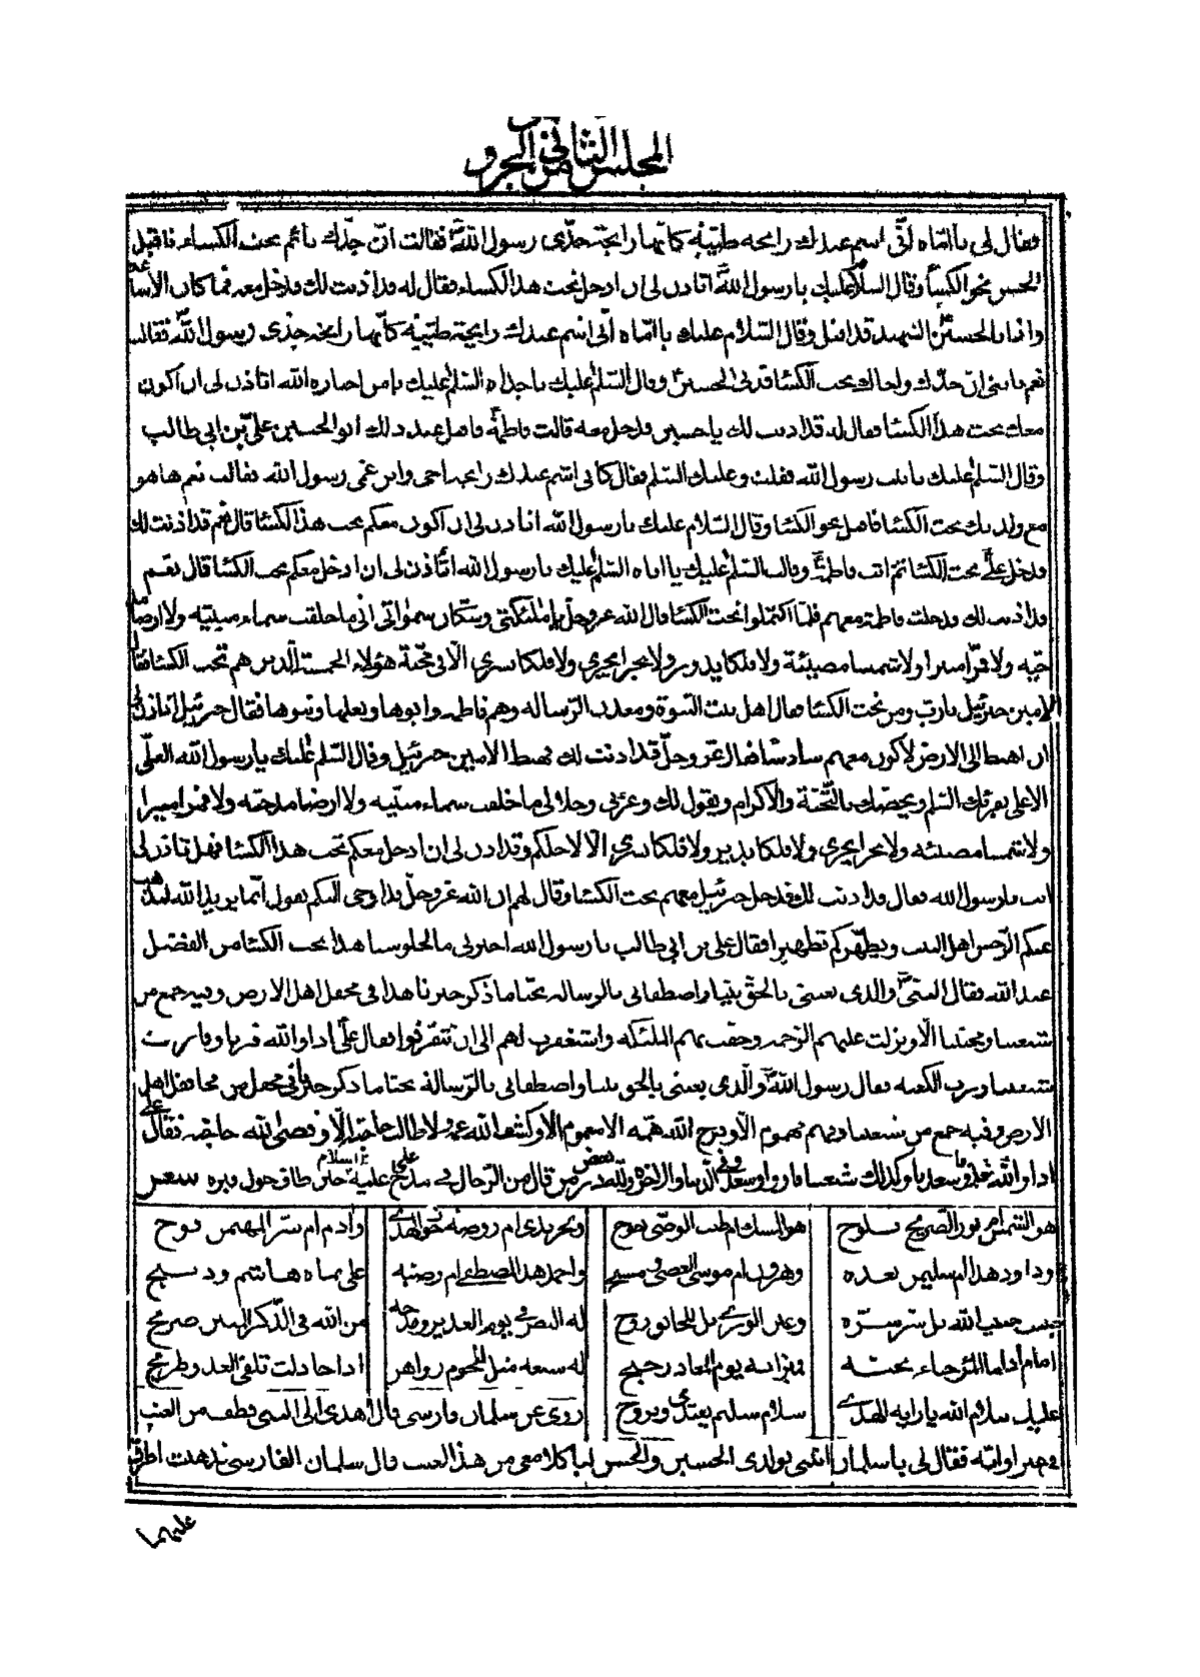 المجلس الثاني من الجزو
فقال لي يا اماه اني اشم عندك رايحة طيبة كانها رايحة جدي رسول الله فقالت ان جدك نائم تحت الكساء فاقبل
الحسن نحو الكسا وقال السلام عليك يا رسول الله اتاذن لي ان ادخل تحت هذا الكساء فقال له قد اذنت لك فدخل معه فما كان الا ساعة
واذا بالحسين الشهيد قد اقبل وقال السلام عليك يا اماه اني اشم عندك رايحة طيبة كانها رايحة جدي رسول الله فقالت
نعم يا بني ان جدك واخاك تحت الكسا فدنى الحسين وقال السلم عليك يا جداه السلم عليك يا من اختاره الله اتاذن لي ان اكون
معك تحت هذا الكسا فقال له قد اذنت لك يا حسين فدخل معه قالت فاطمة فاقبل عند ذلك ابو الحسين علي بن ابي طالب
وقال السلم عليك يا بنت رسول الله فقلت وعليك السلم فقال كاني اشم عندك رايحة اخي وابن عمي رسول الله فقالت نعم ها هو
مع ولديك تحت الكسا فاقبل نحو الكسا وقال السلام عليك يا رسول الله اتاذن لي ان اكون معكم تحت هذ الكسا قال نعم قد اذنت لك
فدخل علي تحت الكسا ثم اتت فاطمة وقالت السلم عليك يا اباه السلم عليك يا رسول الله اتاذن لي ان ادخل معكم تحت الكسا قال نعم
قد اذنت لك فدخلت فاطمة معهم فلما اكتملوا تحت الكسا قال الله عز وجل يا ملئكتي وسكان سمواتي اني ما خلقت سماء مبنية ولا ارضا مد
حية ولا قمرا منيرا ولا شمسا مضيئة ولا فلكا يدور ولا بحرا يجري ولا فلكا يسري الا في محبة هؤلاء الخمسة الذين هم تحت الكسا فقال
الامين جبرئيل يا رب ومن تحت الكسا فقال اهل بيت النبوة ومعدن الرسالة وهم فاطمة وابوها وبعلها وبنوها فقال جبرئيل اتاذن لي
ان اهبط الى الارض لاكون معهم سادسا فقال عز وجل قد اذنت لك فهبط الامين جبرئيل وقال السلم عليك يا رسول الله العلي
الاعلى يقرئك السلم ويخصك بالتحية والاكرام ويقول لك وعزتي وجلالي ما خلقت سماء مبنية ولا ارضا مدحية ولا قمرا منيرا
ولا شمسا مضيئة ولا بحرا يجري ولا فلكا يدير ولا فلكا يسري الا لاجلكم وقد اذن لي ان ادخل معكم تحت هذا الكسا فهل تاذن لي
انت يا رسول الله فقال قد اذنت لك فدخل جبرئيل معهم تحت الكسا وقال لهم ان الله عز وجل قد اوحى اليكم يقول انما يريد الله ليذهب
عنكم الرجس اهل البيت ويطهركم تطهيرا فقال علي بن ابي طالب يا رسول الله اخبرني ما لجلوسنا هذا تحت الكسا من الفضل
عند الله فقال النبي والذي بعثني بالحق نبيا واصطفاني بالرسالة نجيا ما ذكر خبرنا هذا في محفل اهل الارض وفيه جمع من
شيعتنا ومحبينا الا ونزلت عليهم الرحمة وحفت بهم الملئكة واستغفرت لهم الى ان يتفرقوا فقال علي اذا والله فزنا وفازت
شيعتنا ورب الكعبة فقال رسول الله والذي بعثني بالحق نبيا واصطفاني بالرسالة نجيا ما ذكر خبرنا في محفل من محافل اهل
الارض وفيه جمع من شيعتنا وفيهم مهموم الا وفرج الله همه الا مغموم الا وكشف الله غمه ولا طالب حاجة الا وقضى الله حاجته فقال علي
اذا والله فزنا وسعدنا وكذلك شيعتنا فازوا وسعدوا في الدنيا والاخرة ولله در من قال من الرجال في مدح علي عليه السلام حين طاف حول قبره شعر
هو الشمس ام نور الضريح يلوح هو المسك ام طيب الوصي يفوح وبحر ندى ام روضة تحوي الهدى وادم ام سر المهيمن نوح
وداود هذا ام سليمن بعده وهرون ام موسى العصى ومسيح واحمد هذا المصطفى ام وصيه علي نماه هاشم وذبيح
حبيب حبيب الله بل سر سره وعين الورى بل للخلائق روح له النص في يوم الغدير ومدحه من الله في الذكر المبين صريح
امام اذا ما المرء جاء بحبه فميزانه يوم المعاد رجيح له شيعة مثل النجوم زواهر اذا جادلت تلقى العدو طريح
عليك سلام الله يا راية الهدى سلام سليم يغتدي ويروح روى عن سلمان فارسي قال اهدى الى النبي قطف من العنب
في غير اوانه فقال لي يا سلمان ائتني بولدي الحسين والحسن لياكلا معي من هذا العنب قال سلمان الفارسي فذهبت اطرق
عليهما